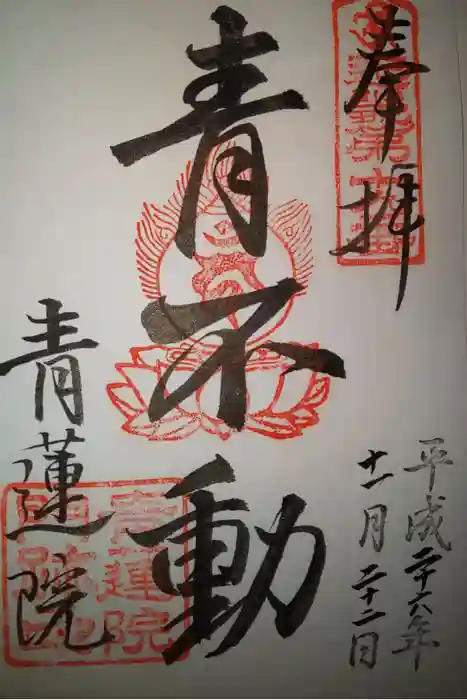 奉拝
平成二十六年
十一月二十二日
青不動
青蓮院